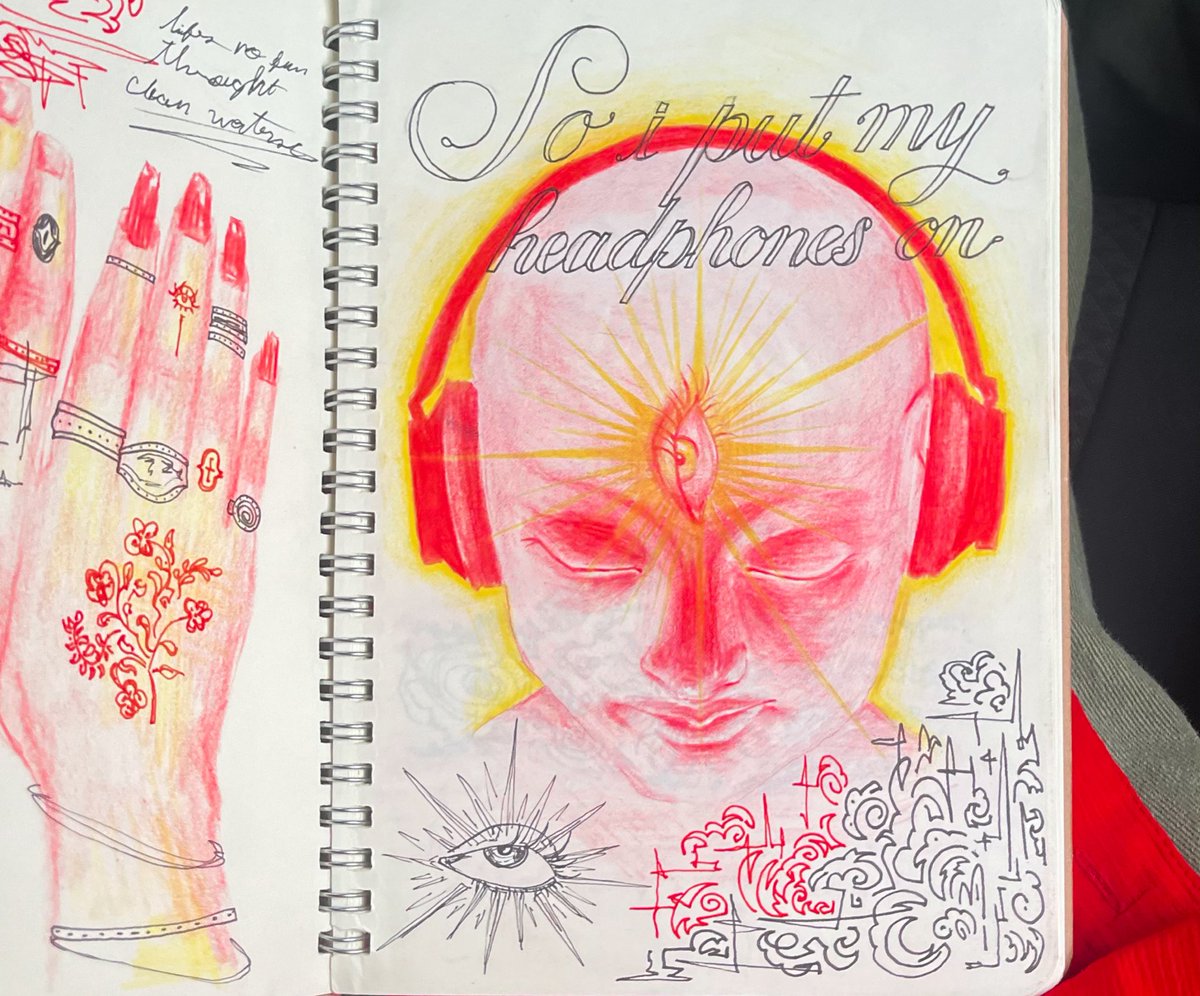 lifes no fun
thought
clean waters
So i put my
headphones on